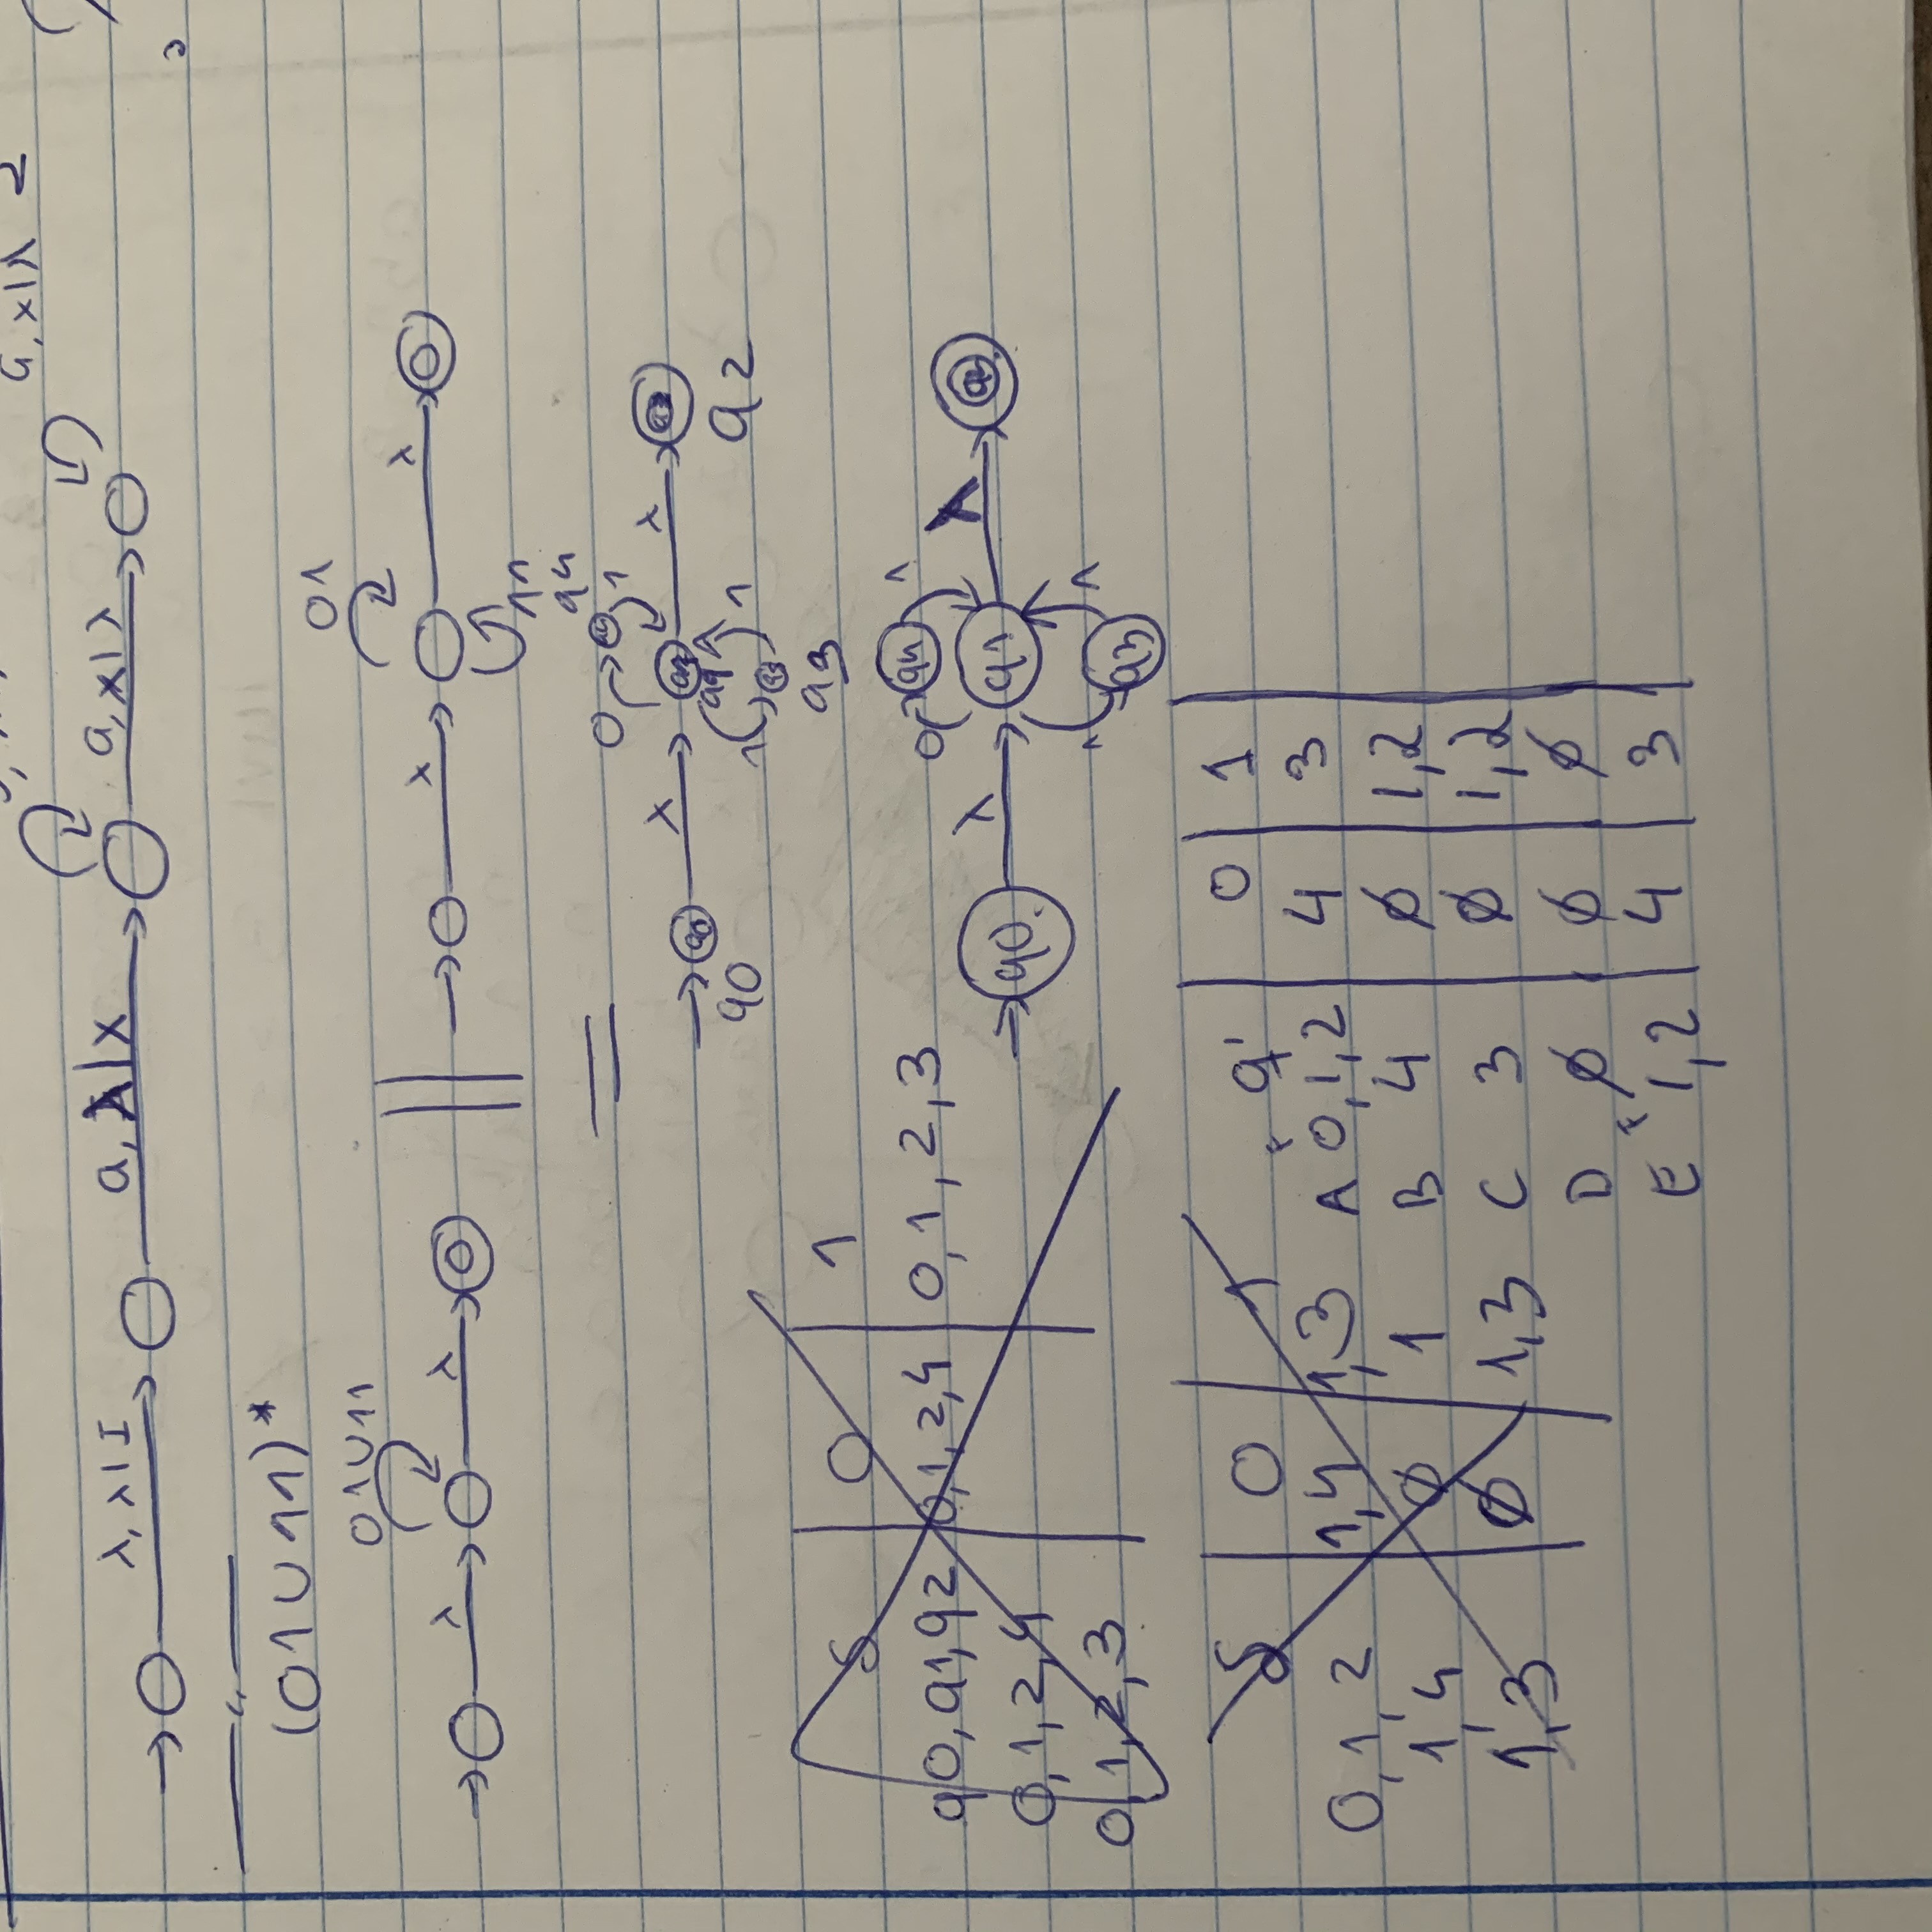 a, x|λ 2
λ, λ|I a, λ|x a, x|λ
(01∪11)*
01∪11 01
λ λ λ λ
11
q4
0 1
λ λ
q0 q1 1 1 q2
q3
S 0 1
q0, q1, q2 0,1,2,4 0,1,2,3
0,1,2,4
0,1,2,3
0 q4 1
q0 λ q1 λ q2
1 q3 1
S 0 1
0,1,2 1,4 1,3
1,4 ∅ 1
1,3 ∅ 1,3
q' 0 1
A 0,1,2 4 3
B 4 ∅ 1,2
C 3 ∅ 1,2
D ∅ ∅ ∅
E 1,2 4 3